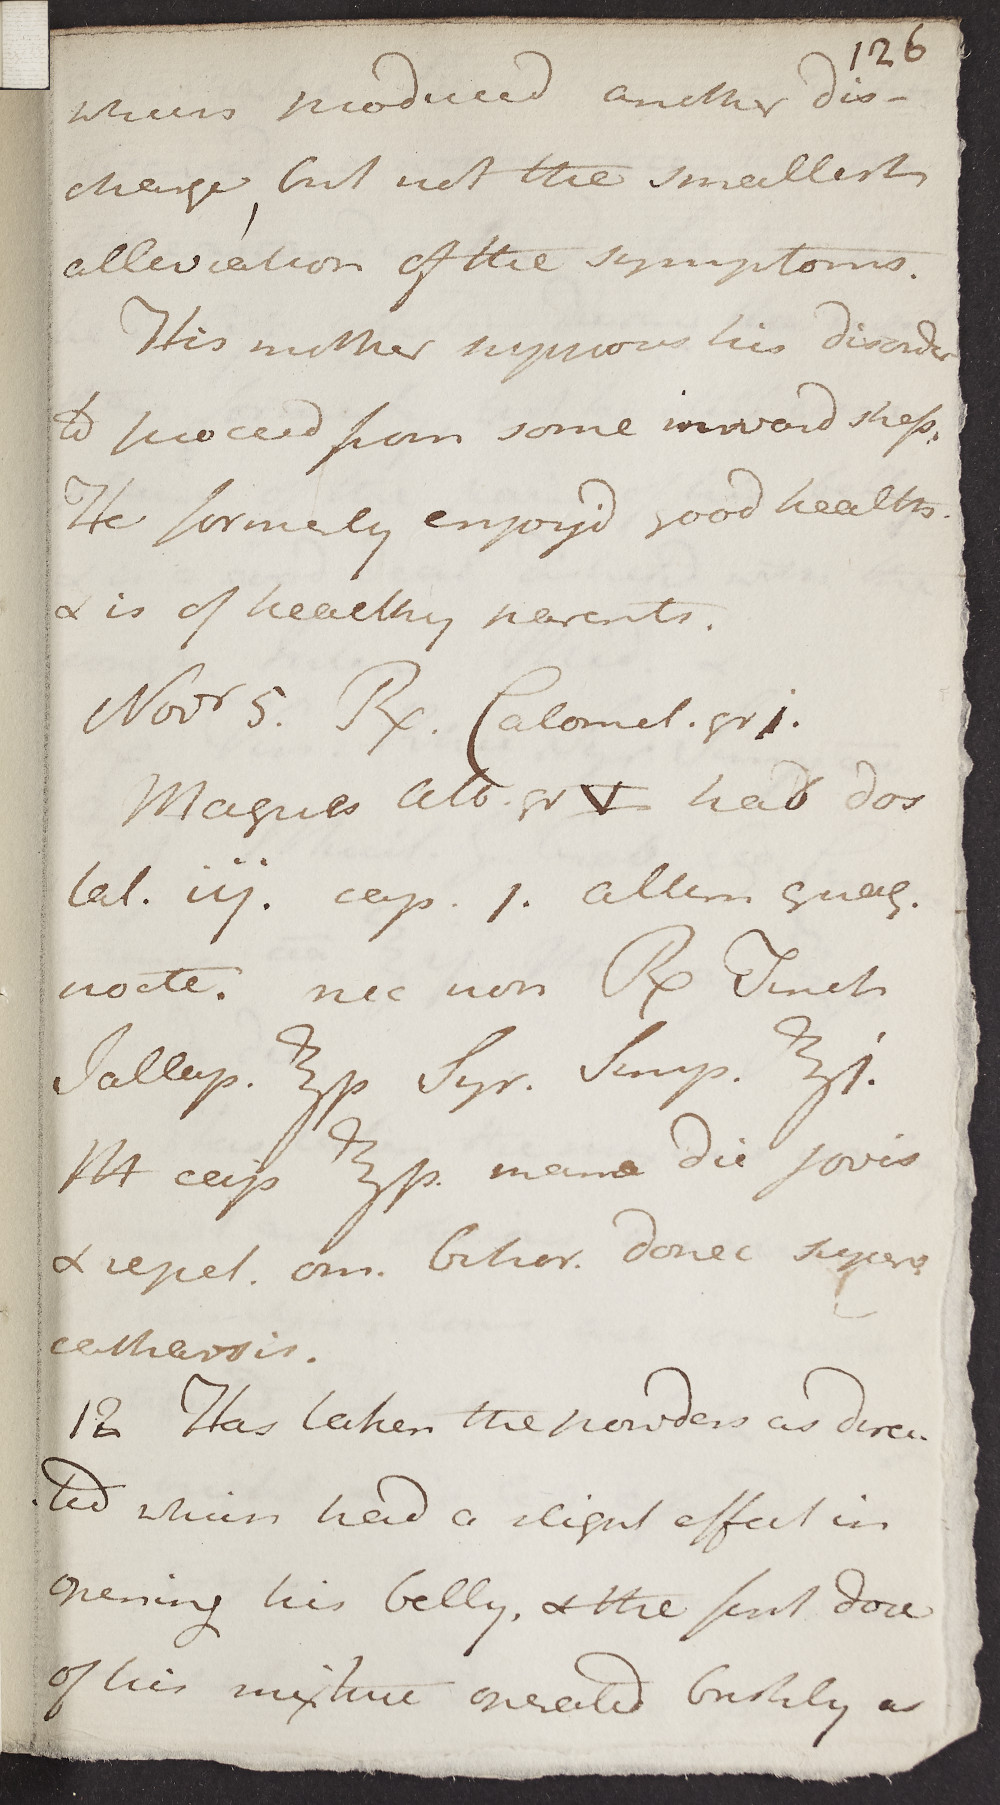 126
which produced another dis-
charge, but not the smallest
alleviation of the symptoms.
His mother supposes his disorder
to proceed from some inward
He formerly enjoy'd good health
& is of healthy parents.
Novr 5. Rx. Calomel. gr j.
Magnes alb. gr v hab dos
tal. iij. cap. j. altern quaq.
nocte. nec non Rx Tinct
Jallap. ℥ß Syr. Simp. ℥j.
M cap ℥ß. mane die jovis
& repet. om. bihor. donec superv
catharsis.
12 Has taken the powders as direc-
ted which had a slight effect in
opening his belly, & the first dose
of his mixture operated briskly as